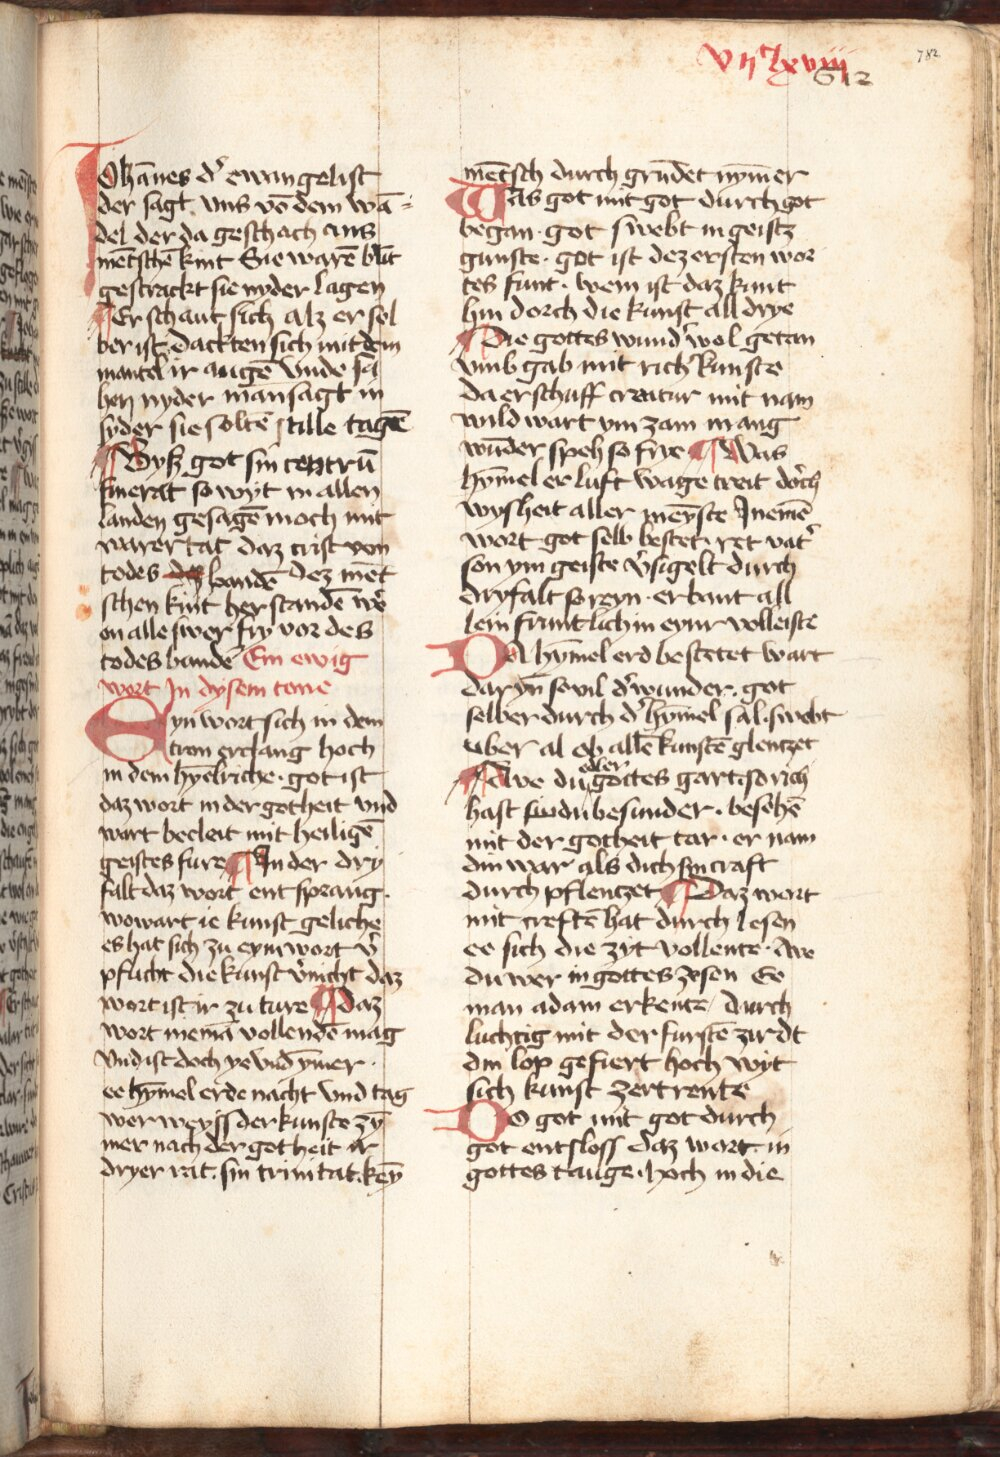 vijᶜlxviij
782
612
Johānes d'̄ ewangelist
der sagt vns vō dem wā=
del der da geschach ans
mētschē kint Sie warē blūt
gestrackt sie nyder lagen
¶ Er schaut sich alz er sol
ber ist dackten sich mit dem
mantel ir augē vnde sa
hen nyder man sagt in
syder sie soltē stille tagē
¶ Wyß got sin centrū
finerat so wyt in allen
landen gesagē moch mit
warer tat daz crist von
todes des bandē dez mēt
schen kint herstandē w'
on alle swer fry vor des
todes bandē Ein ewig
wort In dysem tone
Syn wort sich in dem
tron erclang hoch
in dem hym̄elriche · got ist
daz wort in der gotheit vnd
wart becleit mit heiligē
geistes fure ¶ In der dry
falt daz wort ent sprang ·
wo wart ie kunst geliche
es hat sich zu eym wort v'
pflicht die kunst v'nicht daz
wort ist ir zu ture ¶ daz
wort niemā vollendē mag
vnd ist doch ye vnd ym̄er ·
ee hym̄el erde nacht vnd tag
wer weyss der kunste zy
mer nach der gotheit ir
dryer rat · sin trinitat · key
mētsch durch grūdet nym̄er
Was got mit got durch got
began · got swebt in geistz
gunste · got ist dez ersten wor
tes funt · wem ist daz kunt
hin dorch die kunst all drye
¶ Die gottes wund' wol getan
vmb gab mit rich' kunste
da erschuff creatur mit nam
wild wart ym zam mang
wūder speh so frye ¶ Was
hym̄el er luft wage treit dorch
wysheit aller meyste Inemē
wort got selb bestet · ret vat'
son ym geiste v'sigelt durch
dryfalt so reyn · erbaut all
lein fruntlich in eynr volleiste
Do hym̄el erd bestetet wart
daryn so vil d' wunder · got
selber durch d' hym̄el sal · swebt
vber al ob allē kunstē glentzet
¶ Awe du edler gottes gart · so rich
hast du besunder · besehē
mit der gotheit clar · er nam
din war als dich sin craft
durch pflentzet ¶ Daz wort
mit creftē hat durch lesen
ee sich die zyt vollente · Awe
du wer in gottes wesen Ee
man adam erkente / durch
luchtig mit der furstē zirdt
din lop gefiert hoch wyt
sich kunst zertrente
Do got mit got durch
got entsloss daz wort in
gottes tauge · hoch in die